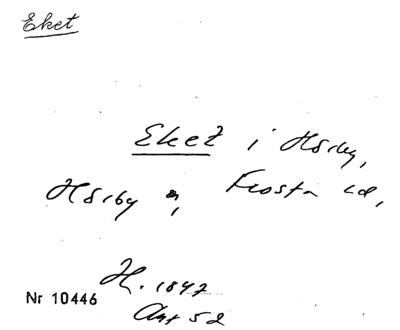 Eket
Eket i Hörby,
Hörby s, Frosta hd,
H. 1847
Nr 10446
Ant 52